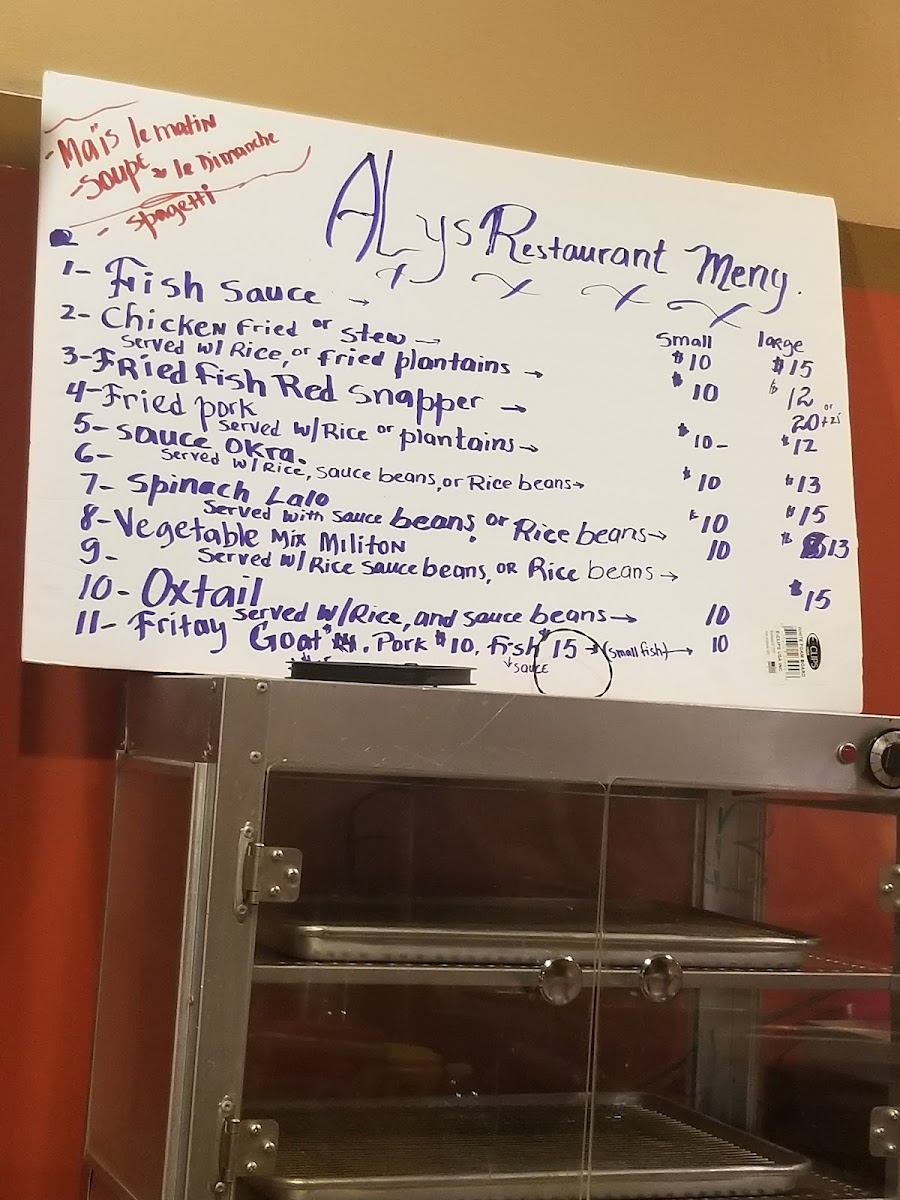 - Maïs le matin
- Soupe le Dimanche
- Spagetti
ALys Restaurant Meny.
small large
1- Fish sauce → $10 $15
2- Chicken Fried or stew →
served w/ Rice, or fried plantains → $10 $12
3- Fried Fish Red Snapper → 20 or + 25
4- Fried pork
served w/Rice or plantains → $10 - $12
5- Sauce OKra.
6- served w/Rice, sauce beans, or Rice beans → $10 $13
7- Spinach Lalo
served with sauce beans, or Rice beans → $10 $15
8- Vegetable Mix Militon 10 $13
9- served w/Rice sauce beans, OR Rice beans →
10- Oxtail $15
served w/Rice, and sauce beans → 10
11- Fritay Goat . Pork $10, Fish 15 → (small fish) → 10
sauce